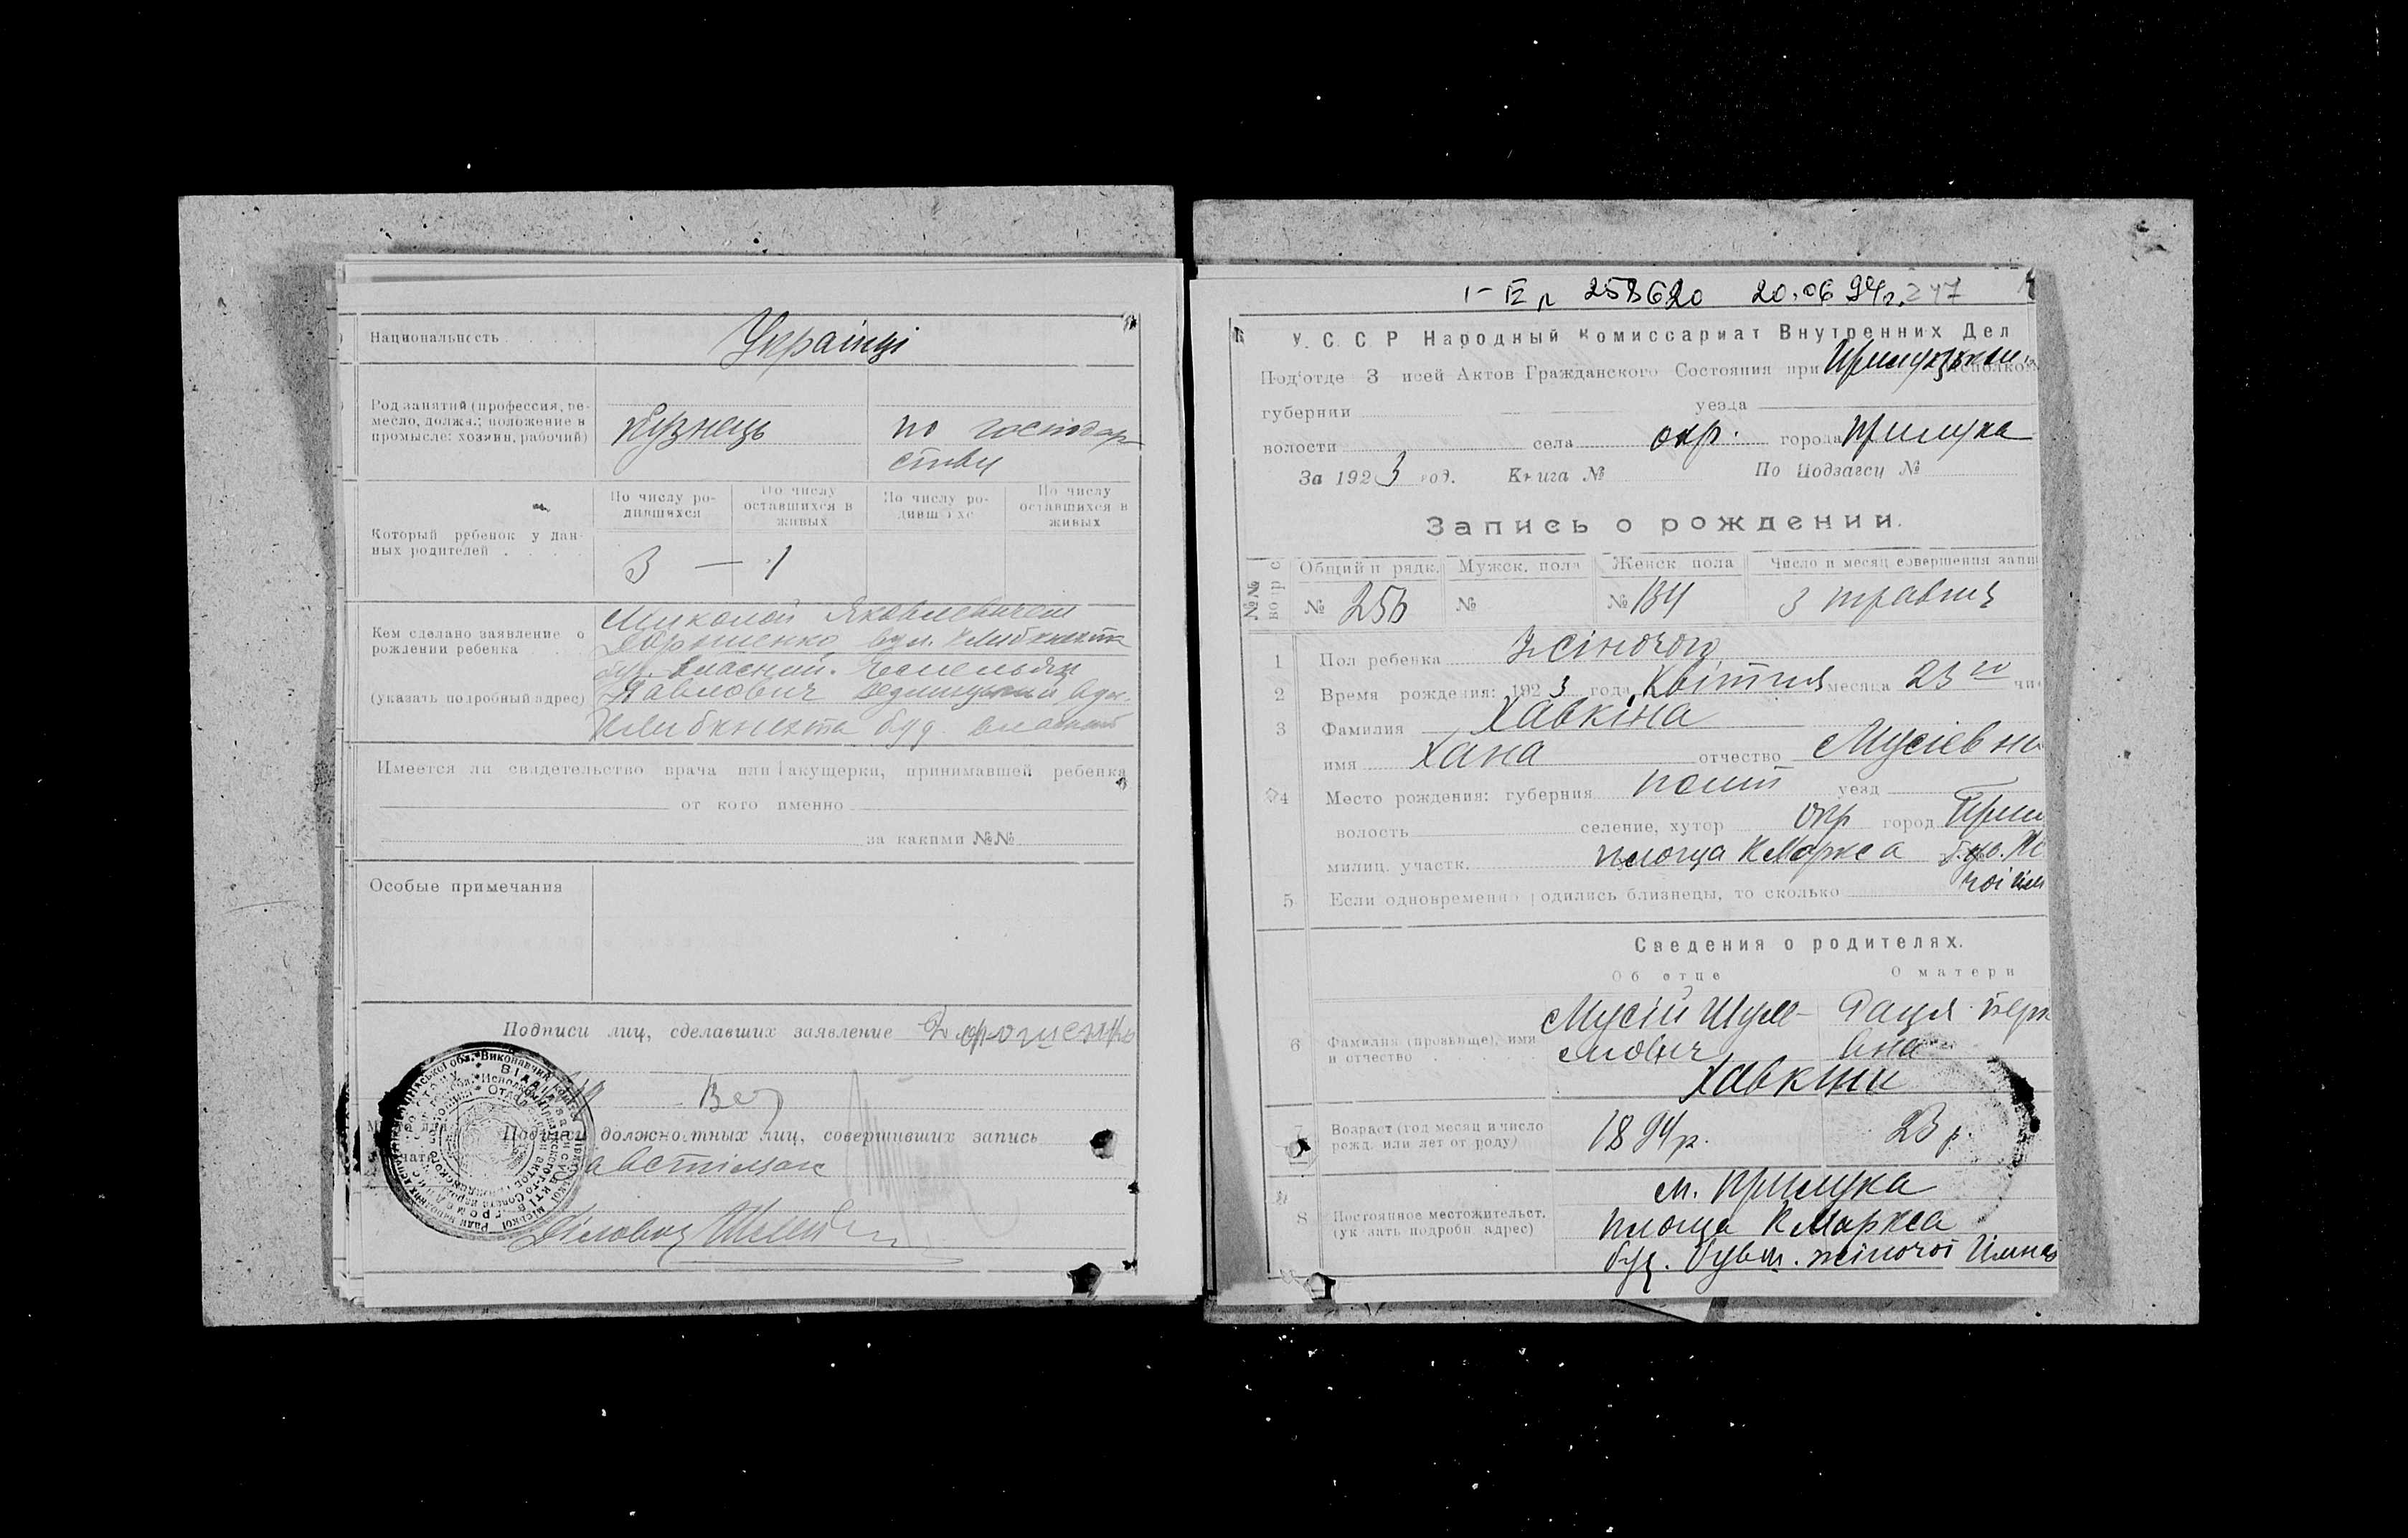 Национальность
Українці
Род занятий (профессия, ре-
месло, должн.; положение в
промысле: хозяин, рабочий)
Кузнець
по господар
ству
По числу ро-
дившихся
По числу
оставшихся в
живых
По числу ро-
дившихся
По числу
оставшихся в
живых
Который ребенок у дан-
ных родителей
3 — 1
Кем сделано заявление о
рождении ребенка
(указать подробный адрес)
Миколой Яковлевичем
Дорошенко вул. Клибкнехта
буд. власний. Емельян
Павлович вул.
Клибкнехта буд. власний
Имеется ли свидетельство врача или акушерки, принимавшей ребенка
от кого именно
за какими №№
Особые примечания
Подписи лиц, сделавших заявление Дорошенко
Подписи должностных лиц, совершивших запись
Діловод
258620 20.06.94р. 247
У. С. С. Р Народный Комиссариат Внутренних Дел
Под'отде З исей Актов Гражданского Состояния при Прилуцьким исполком
губернии уезда
волости села окр. города Прилука
За 1923 год. Книга № По Подзагсу №
Запись о рождении.
№№ вопрос
Общий п рядк. Мужск. пола Женск. пола Число и месяц совершения запи
№ 256 № № 134 3 травня
1 Пол ребенка жіночого
2 Время рождения: 1923 года Квітня месяца 23го чи
3 Фамилия Хавкіна
имя Хана отчество Мусіевн
4 Место рождения: губерния Полт уезд
волость селение, хутор окр город Прил
милиц. участк. площа КМаркса
5 Если одновременно родились близнецы, то сколько
Сведения о родителях.
Об отце О матери
6 Фамилия (прозвище), имя
и отчество
Мусій Шуле-
мович
Хавкіни
7 Возраст (год месяц и число
рожд. или лет от роду)
1894р. 23 р.
8 Постоянное местожительст.
(ук зать подробн адрес)
м. Прилука
площа КМаркса
буд. бувш. жіночої Гімназ